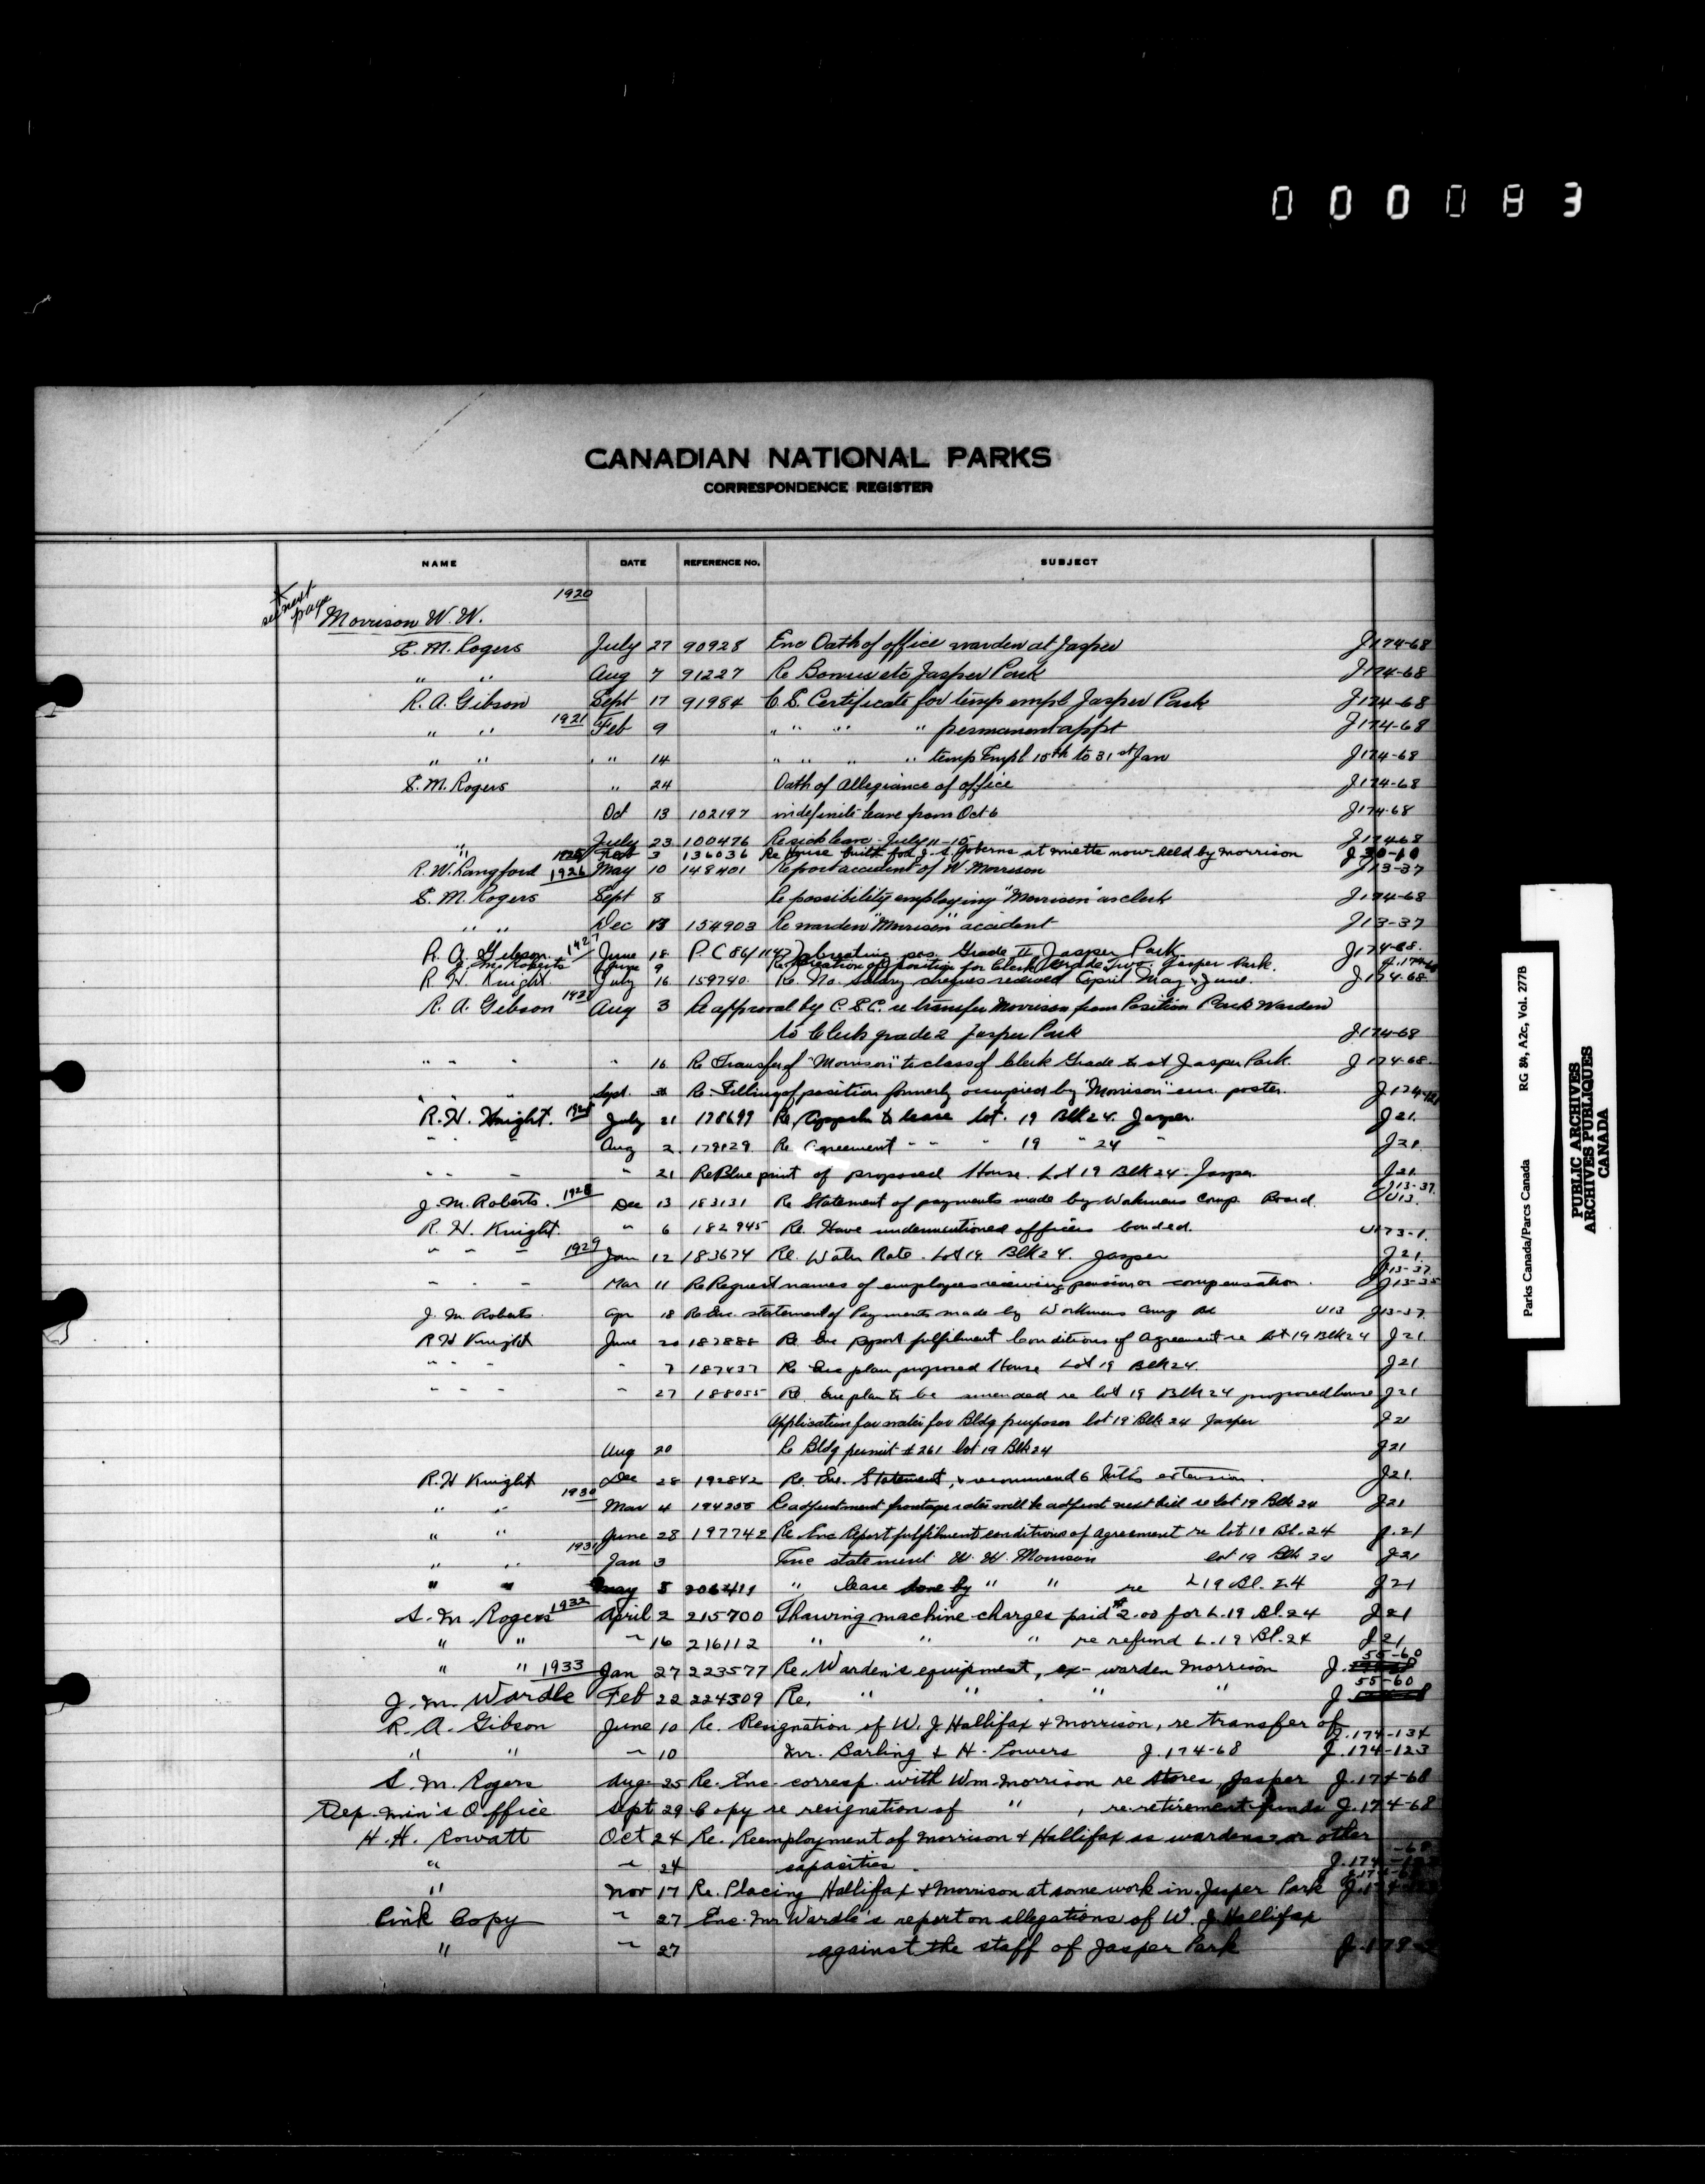 000083
CANADIAN NATIONAL PARKS
CORRESPONDENCE REGISTER
NAME DATE REFERENCE No. SUBJECT
see next page
1920
Morrison W. W.
S. M. Rogers July 27 90928 Enc Oath of office warden at Jasper J174-68
" " Aug 7 91227 Re Bonus etc Jasper Park J174-68
R. A. Gibson Sept 17 91984 C. S. Certificate for temp empl Jasper Park J174-68
" " 1921 Feb 9 " " " " permanent appt J174-68
" " " 14 " " " " temp Empl 15th to 31st Jan J174-68
S. M. Rogers " 24 Oath of Allegiance of office J174-68
Oct 13 102197 indefinite leave from Oct 6 J174-68
" July 23 100476 Re sick leave July 11-15 J174-68
Feb 3 136036 Re House built for J. S. at miette now held by morrison J 20-10
R. W. Langford 1926 May 10 148401 Report accident of W Morrison J13-37
S. M. Rogers Sept 8 Re possibility employing "Morrison" as clerk J174-68
" " Dec 13 154903 Re warden "Morrison" accident J13-37
R. A. Gibson 1927 June 18 P. C 86/1147 creating pos. Grade II Jasper Park J174-68.
J. M. Roberts June 9 Re creation of position for Clerk Grade Two. Jasper Park. J.174-68
R. H. Knight. July 16 159740. Re. No salary cheques received April May & June. J174-68.
R. A. Gibson Aug 3 Re approval by C. S. C. re transfer Morrison from Position Park Warden
to Clerk grade 2 Jasper Park J174-68
" " " " 16 Re Transfer of "Morrison" to class of Clerk Grade 2 at Jasper Park. J174-68.
" " " Sept. Re. Filling of position formerly occupied by "Morrison" enc. poster.
R. H. Knight. 1928 July 21 178699 Re, Appln to lease Lot. 19 Blk 24. Jasper. J21.
" " " Aug 2. 179129 Re Agreement " " " 19 " 24 " J21.
" " " " 21 Re Blue print of proposed House. Lot 19 Blk 24. Jasper J21.
J. M. Roberts. 1928 Dec 13 183131 Re Statement of payments made by Workmens Comp. Board. J13-37. U13.
R. H. Knight. " 6 182945 Re. Have undermentioned officers bonded. U173-1.
" " " 1929 Jan 12 183674 Re. Water Rate. Lot 19. Blk 24. Jasper J21.
" " " Mar 11 Re Request names of employees receiving pension or compensation. J13-37. J13-35
J. M. Roberts. Apr 18 Re Enc. statement of Payments made by Workmens Comp Bd U13 J13-37
R H Knight June 20 187888 Re Enc Report fulfilment Conditions of Agreement re lot 19 Blk 24 J21
" " " " 7 187437 Re Enc plan proposed House Lot 19 Blk 24. J21
" " " " 27 188055 Re Enc plan to be amended re lot 19 Blk 24 proposed house J21
Application for water for Bldg purposes lot 19 Blk 24 Jasper J21
Aug 20 Re Bldg permit #261 lot 19 Blk 24 J21
R. H Knight Dec 28 192842 Re. Enc. Statement, & recommend 6 mths extension. J21.
" " 1930 Mar 4 194255 Re adjustment frontage rates will be adjust next bill re lot 19 Blk 24 J21
" " June 28 197742 Re Enc Report fulfilment conditions of agreement re lot 19 Bl. 24 J.21
" " 1931 Jan 3 Enc statement W. W. Morrison lot 19 Blk 24 J21
" " May 5 206411 " lease done by " " re L19 Bl. 24 J21
S. M. Rogers 1932 April 2 215700 Thawing machine charges paid $2.00 for L.19 Bl. 24 J21
" " " 16 216112 " " " re refund L.19 Bl. 24 J21
" " 1933 Jan 27 223577 Re, Warden's equipment, ex-warden Morrison J. 55-60
J. M. Wardle Feb 22 224309 Re, " " " " J. 55-60
R. A. Gibson June 10 Re. Resignation of W. J Hallifax & Morrison, re transfer of J.174-134
" " " 10 Mr. Barling & H. Powers J.174-68 J.174-123
S. M. Rogers Aug. 25 Re. Enc corresp. with Wm Morrison re stores, Jasper J.174-68
Dep. Min's Office Sept 29 Copy re resignation of " , re retirement funds J.174-68
H. H. Rowatt Oct 24 Re. Reemployment of Morrison & Hallifax as wardens or other
" " 24 capacities.
" Nov 17 Re. Placing Hallifax & Morrison at some work in Jasper Park
Pink Copy " 27 Enc. Mr Wardle's report on allegations of W. J. Hallifax
" " 27 against the staff of Jasper Park
Parks Canada/Parcs Canada RG 84, A2c, Vol. 277B
PUBLIC ARCHIVES
ARCHIVES PUBLIQUES
CANADA